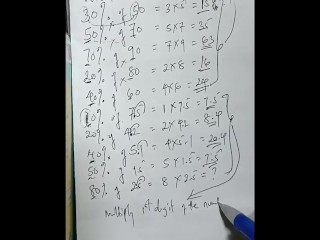 30% of 50 = 3x5 = 15
50% of 70 = 5x7 = 35
70% of 90 = 7x9 = 63
20% of 80 = 2x8 = 16
40% of 60 = 4x6 = 24
10% of 75 = 1x7.5 = 7.5
20% of = 2x = 8.4
40% of = 4x5.1 = 20.4
50% of = 5x1.5 = 7.5
80% of 25 = 8x2.5 = ?
multiply 1st digit of the num